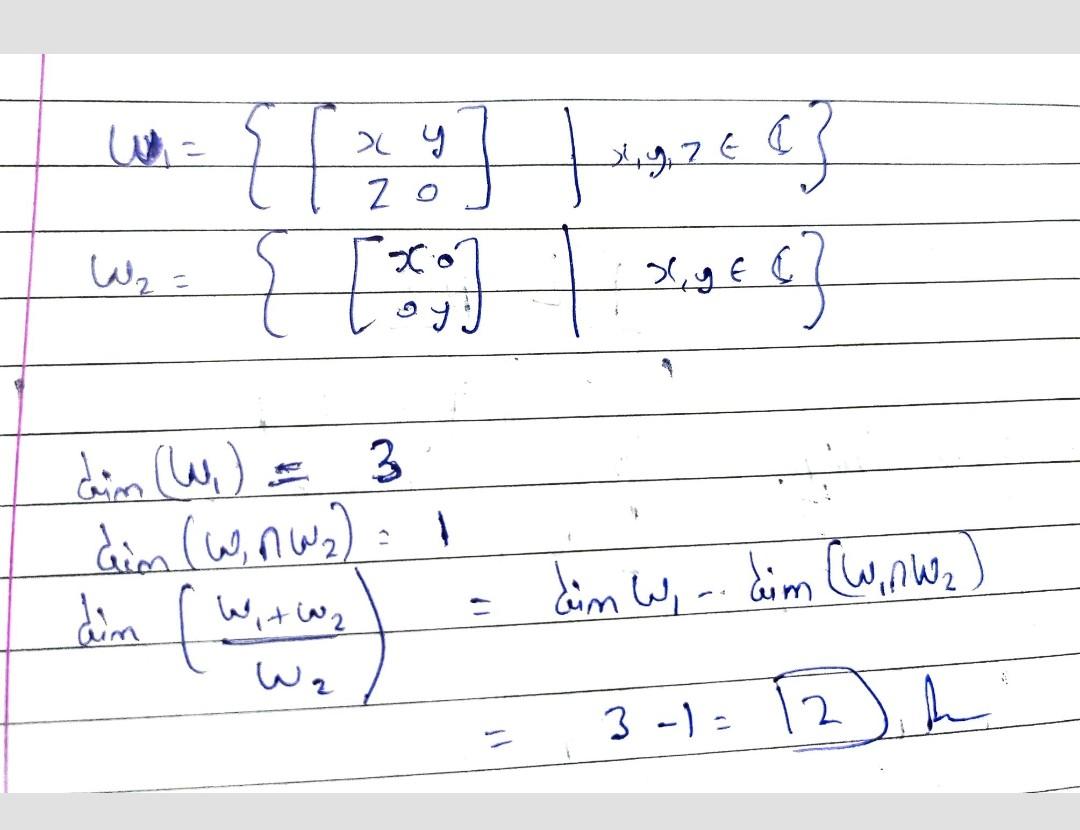 W₁ = { [ x y ] | x, y, z ∈ ℂ }
z 0
W₂ = { [ x 0 ] | x, y ∈ ℂ }
0 y
dim (W₁) = 3
dim (W₁ ∩ W₂) = 1
dim ( W₁ + W₂ / W₂ ) = dim W₁ - dim (W₁ ∩ W₂)
= 3 - 1 = 2